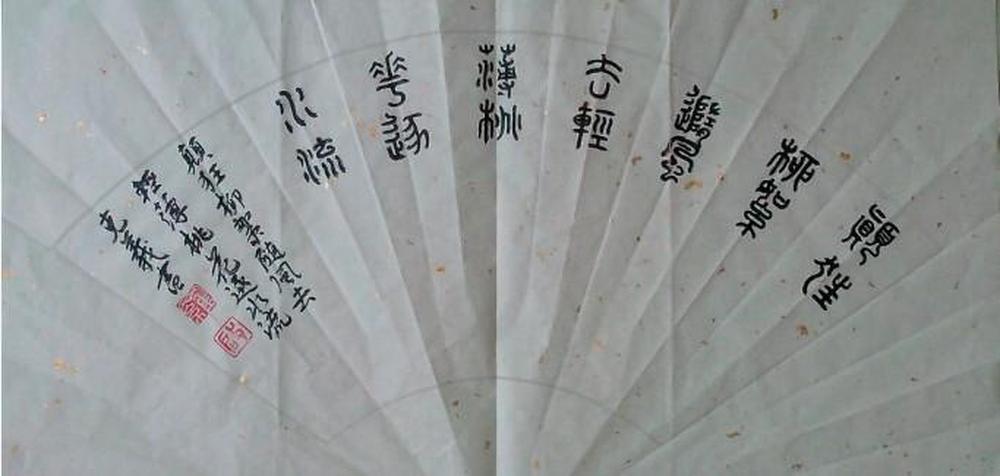 顛狂
柳絮
隨風
去輕
薄桃
花逐
水流
顛狂柳絮隨風去
輕薄桃花逐水流
克義書